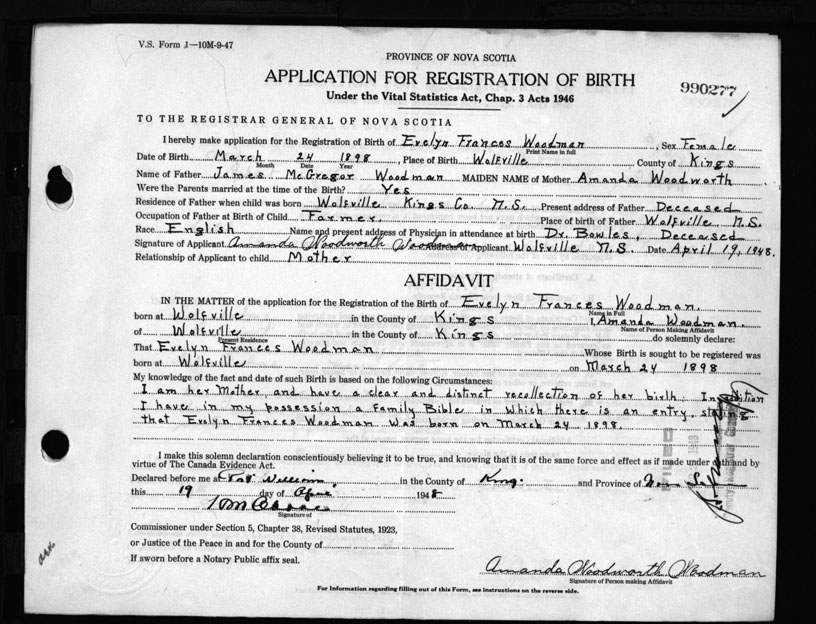 V.S. Form 1—10M-9-47
PROVINCE OF NOVA SCOTIA
APPLICATION FOR REGISTRATION OF BIRTH
990277
Under the Vital Statistics Act, Chap. 3 Acts 1946
TO THE REGISTRAR GENERAL OF NOVA SCOTIA
I hereby make application for the Registration of Birth of Evelyn Frances Woodman, Sex Female
Print Name in full
Date of Birth March 24 1898, Place of Birth Wolfville County of Kings
Month Date Year
Name of Father James McGregor Woodman MAIDEN NAME of Mother Amanda Woodworth
Were the Parents married at the time of the Birth? Yes
Residence of Father when child was born Wolfville Kings Co. N.S. Present address of Father Deceased
Occupation of Father at Birth of Child Farmer. Place of birth of Father Wolfville N.S.
Race English Name and present address of Physician in attendance at birth Dr. Bowles, Deceased
Signature of Applicant Amanda Woodworth Woodman Address of Applicant Wolfville N.S. Date April 19, 1948.
Relationship of Applicant to child Mother
AFFIDAVIT
IN THE MATTER of the application for the Registration of the Birth of Evelyn Frances Woodman.
Name in Full
born at Wolfville in the County of Kings I, Amanda Woodman.
Name of Person Making Affidavit
of Wolfville in the County of Kings do solemnly declare:
Present Residence
That Evelyn Frances Woodman Whose Birth is sought to be registered was
born at Wolfville on March 24 1898
My knowledge of the fact and date of such Birth is based on the following Circumstances:
I am her Mother and have a clear and distinct recollection of her birth. In addition
I have in my possession a Family Bible in which there is an entry, stating
that Evelyn Frances Woodman was born on March 24 1898.
I make this solemn declaration conscientiously believing it to be true, and knowing that it is of the same force and effect as if made under oath and by
virtue of The Canada Evidence Act.
Declared before me at Port Williams in the County of Kings and Province of Nova S.
this 19 day of April 1948
Signature of
Commissioner under Section 5, Chapter 38, Revised Statutes, 1923,
or Justice of the Peace in and for the County of
If sworn before a Notary Public affix seal.
Amanda Woodworth Woodman
Signature of Person making Affidavit
For Information regarding filling out of this Form, see instructions on the reverse side.